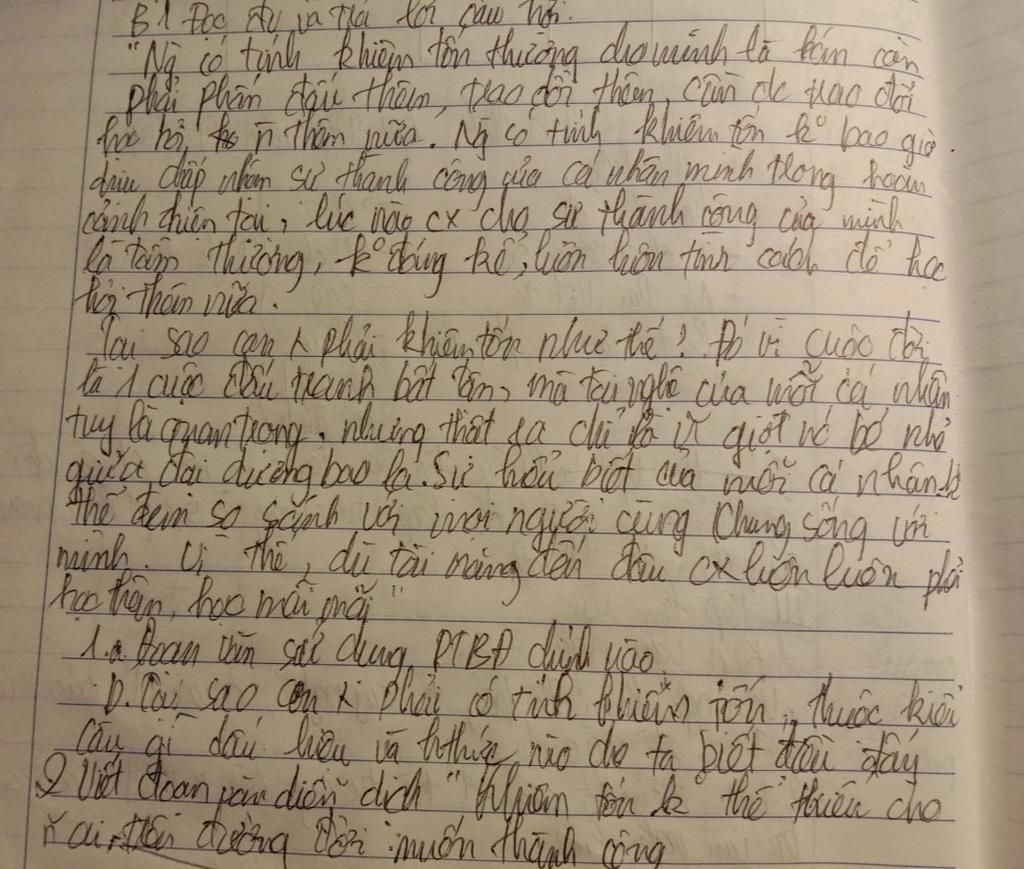 B1 Đọc, đv và trả lời câu hỏi.
"Ng có tính khiêm tốn thường cho mình là kém cần
phải phấn đấu thêm, trao dồi thêm, cần đc trao đổi
học hỏi, n thêm nữa. Ng có tính khiêm tốn k° bao giờ
chịu chấp nhận sự thành công của cá nhân mình trong hoàn
cảnh hiện tại, lúc nào cx cho sự thành công của mình
là tầm thường, k° đáng kể, luôn luôn tìm cách để học
hỏi thêm nữa.
Tại sao con x phải khiêm tốn như thế? Đó vì cuộc đời
là 1 cuộc đấu tranh bất tận, mà tài nghệ của mỗi cá nhân
tuy là quan trọng, nhưng thật ra chỉ là giọt nc bé nhỏ
giữa đại dương bao la. Sự hiểu biết của mỗi cá nhân k
thể đem so sánh với mọi người cùng chung sống với
mình. Vì thế, dù tài năng đến đâu cx luôn luôn phải
học thêm, học mãi mãi"
1.a. Đoạn văn sử dụng PTBĐ chính nào
b. Tại sao con x phải có tính khiêm tốn, thuộc kiểu
câu gì dấu hiệu và hthức nào cho ta biết điều đấy
2 Viết đoạn văn diễn dịch "Khiêm tốn k thể thiếu cho
ai trên đường đời muốn thành công